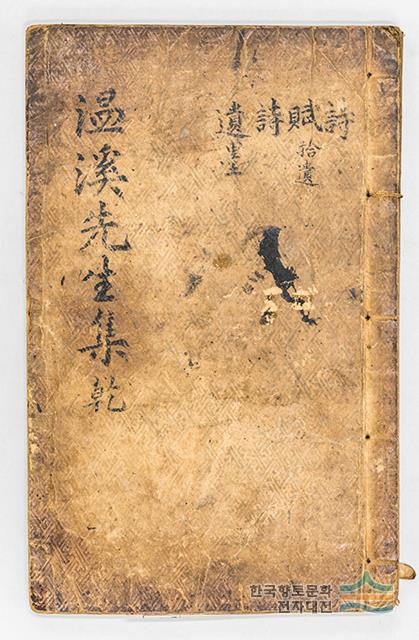 詩
賦 拾遺
詩
遺
温溪先生集 乾
한국향토문화
전자대전